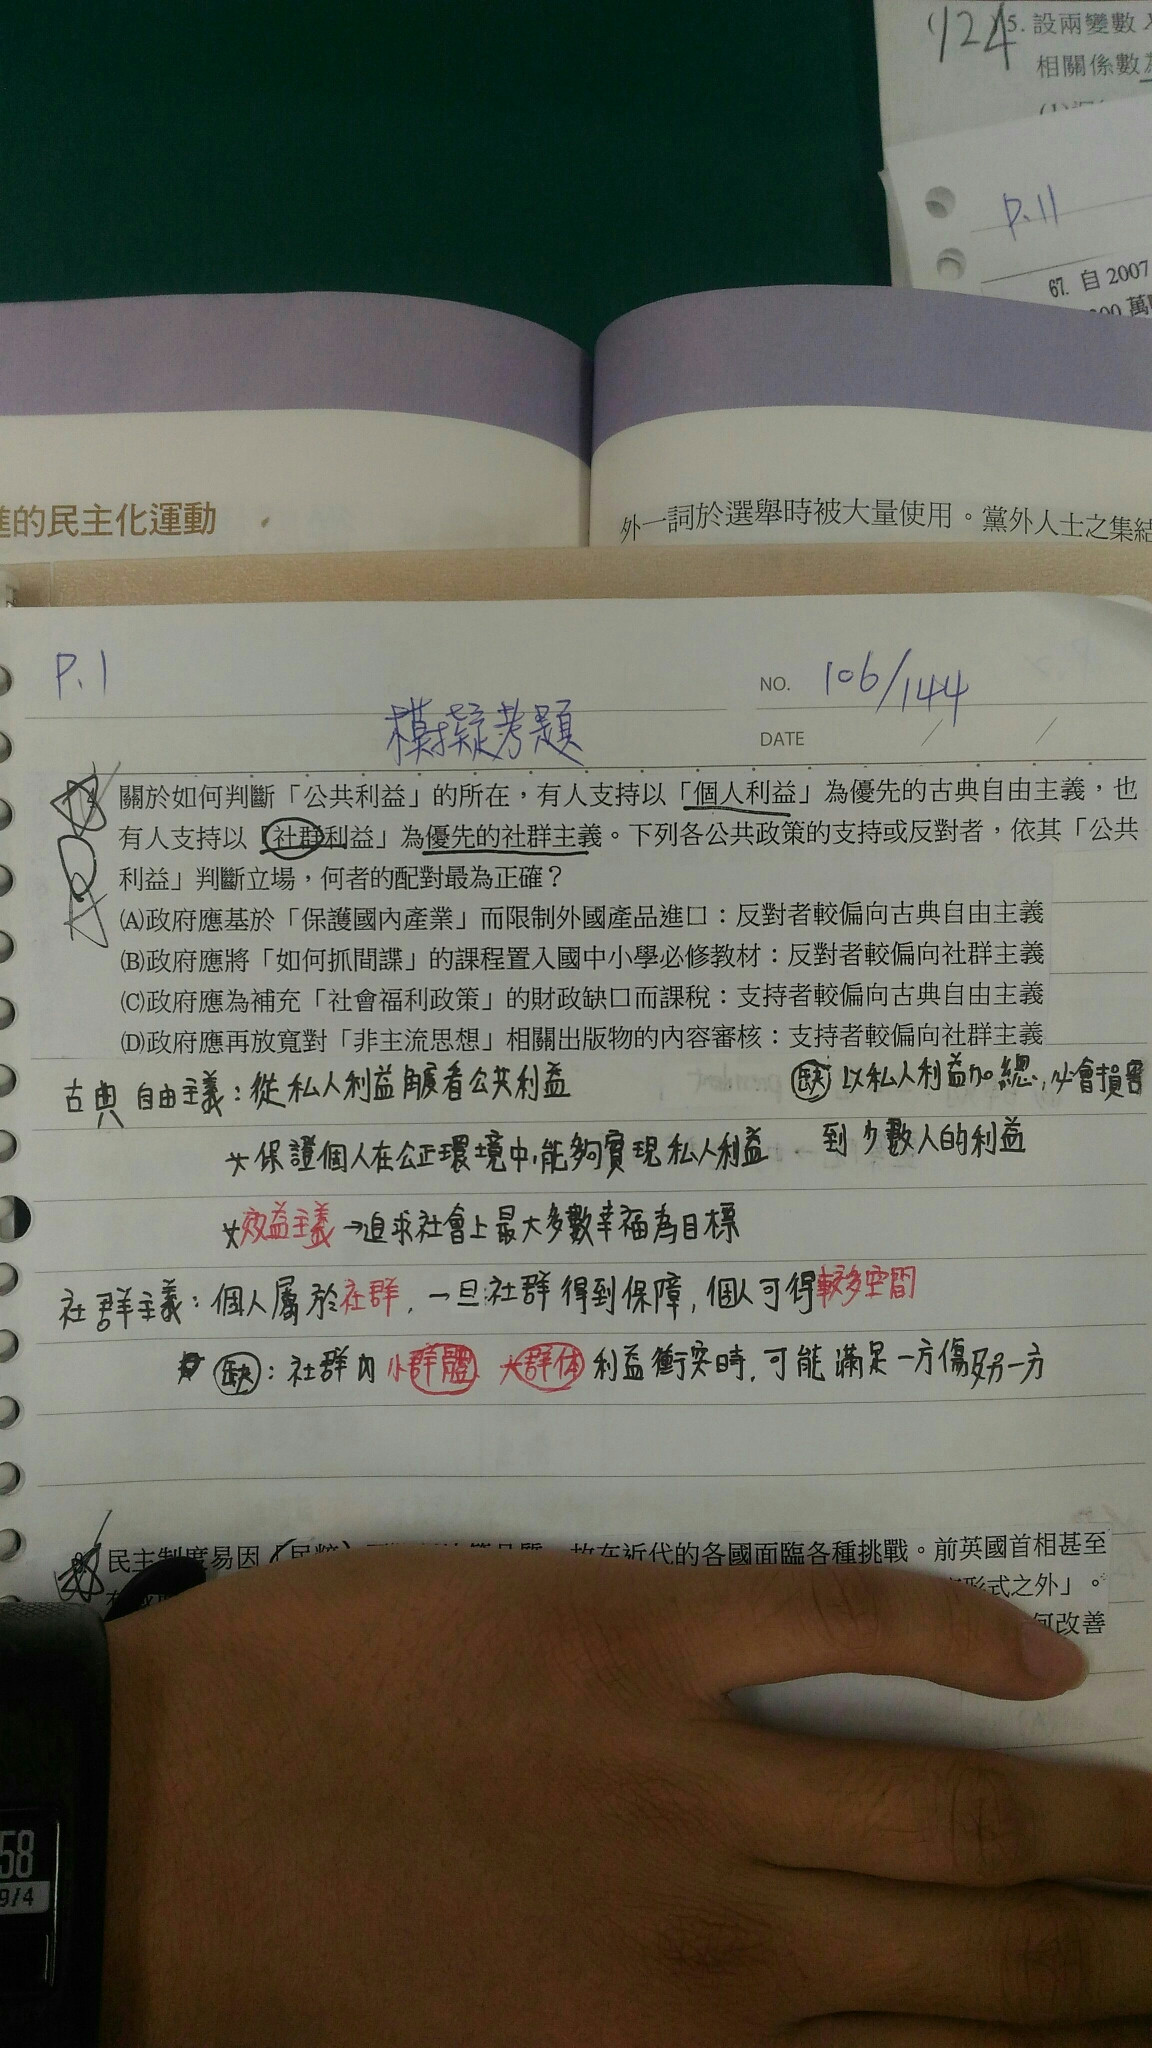 124
5. 設兩變數
相關係數
P.11
67. 自2007
進的民主化運動
外一詞於選舉時被大量使用。黨外人士之集結
P.1
NO. 106/144
模擬考題
DATE / /
關於如何判斷「公共利益」的所在,有人支持以「個人利益」為優先的古典自由主義,也
有人支持以「社群利益」為優先的社群主義。下列各公共政策的支持或反對者,依其「公共
利益」判斷立場,何者的配對最為正確?
(A)政府應基於「保護國內產業」而限制外國產品進口:反對者較偏向古典自由主義
(B)政府應將「如何抓間諜」的課程置入國中小學必修教材:反對者較偏向社群主義
(C)政府應為補充「社會福利政策」的財政缺口而課稅:支持者較偏向古典自由主義
(D)政府應再放寬對「非主流思想」相關出版物的內容審核:支持者較偏向社群主義
古典自由主義:從私人利益角度看公共利益
缺 以私人利益加總,必會損害
到少數人的利益
*保證個人在公正環境中,能夠實現私人利益
*效益主義→追求社會上最大多數幸福為目標
社群主義:個人屬於社群,一旦社群得到保障,個人可得較多空間
缺:社群內小群體 大群体利益衝突時,可能滿足一方傷另一方
民主制度易因 故在近代的各國面臨各種挑戰。前英國首相甚至
形式之外」。
何改善
58
9/4